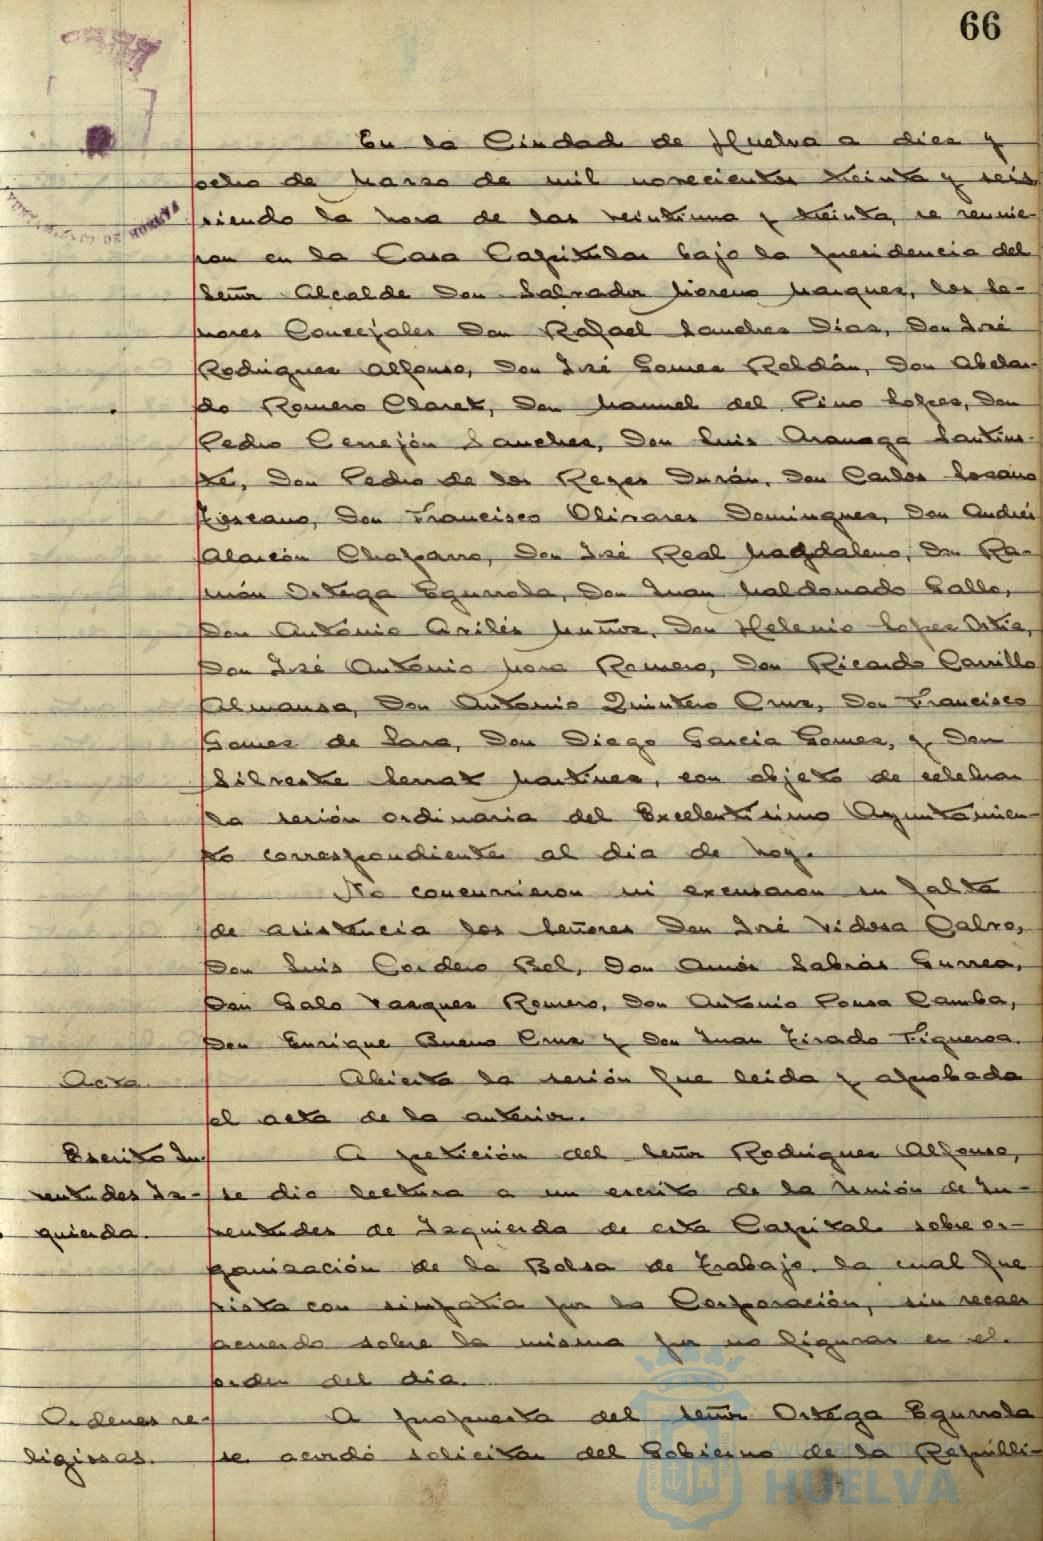 66
En la Ciudad de Huelva a diez y
ocho de Marzo de mil novecientos treinta y seis
siendo la hora de las veintiuna y treinta, se reunie-
ron en la Casa Capitular bajo la presidencia del
Señor Alcalde Don Salvador Moreno Marquez, los Se-
ñores Concejales Don Rafael Sanchez Diaz, Don José
Rodriguez Alfonso, Don José Gomez Roldán, Don Abelar-
do Romero Claret, Don Manuel del Pino Lopez, Don
Pedro Cerrejón Sanchez, Don Luis Aranaga Santius-
te, Don Pedro de los Reyes Durán, Don Carlos Lozano
Toscano, Don Francisco Olivares Dominguez, Don Andrés
Alarcón Chaparro, Don José Real Magdaleno, Don Ra-
món Ortega Egurrola, Don Juan Maldonado Gallo,
Don Antonio Avilés Muñoz, Don Helenio Lopez Ortiz,
Don José Antonio Mora Romero, Don Ricardo Carrillo
Almansa, Don Antonio Quintero Cruz, Don Francisco
Gomez de Lara, Don Diego Garcia Gomez, y Don
Silvestre Serrat Martinez, con objeto de celebrar
la sesión ordinaria del Excelentisimo Ayuntamien-
to correspondiente al dia de hoy.
No concurrieron ni excusaron su falta
de asistencia los Señores Don José Vidosa Calvo,
Don Luis Cordero Bel, Don Amós Sabrás Gurrea,
Don Galo Vazquez Romero, Don Antonio Pousa Camba,
Don Enrique Bueno Cruz y Don Juan Tirado Figueroa.
Acta.
Abierta la sesión fue leida y aprobada
el acta de la anterior.
Escrito Ju-
ventudes Iz-
quierda.
A petición del Señor Rodriguez Alfonso,
se dio lectura a un escrito de la Unión de Ju-
ventudes de Izquierda de esta Capital sobre or-
ganización de la Bolsa de Trabajo, la cual fue
vista con simpatia por la Corporación, sin recaer
acuerdo sobre la misma por no figurar en el
orden del dia.
Ordenes re-
ligiosas.
A propuesta del Señor Ortega Egurrola
se acordó solicitar del Gobierno de la Repúbli-
Ayuntamiento
HUELVA